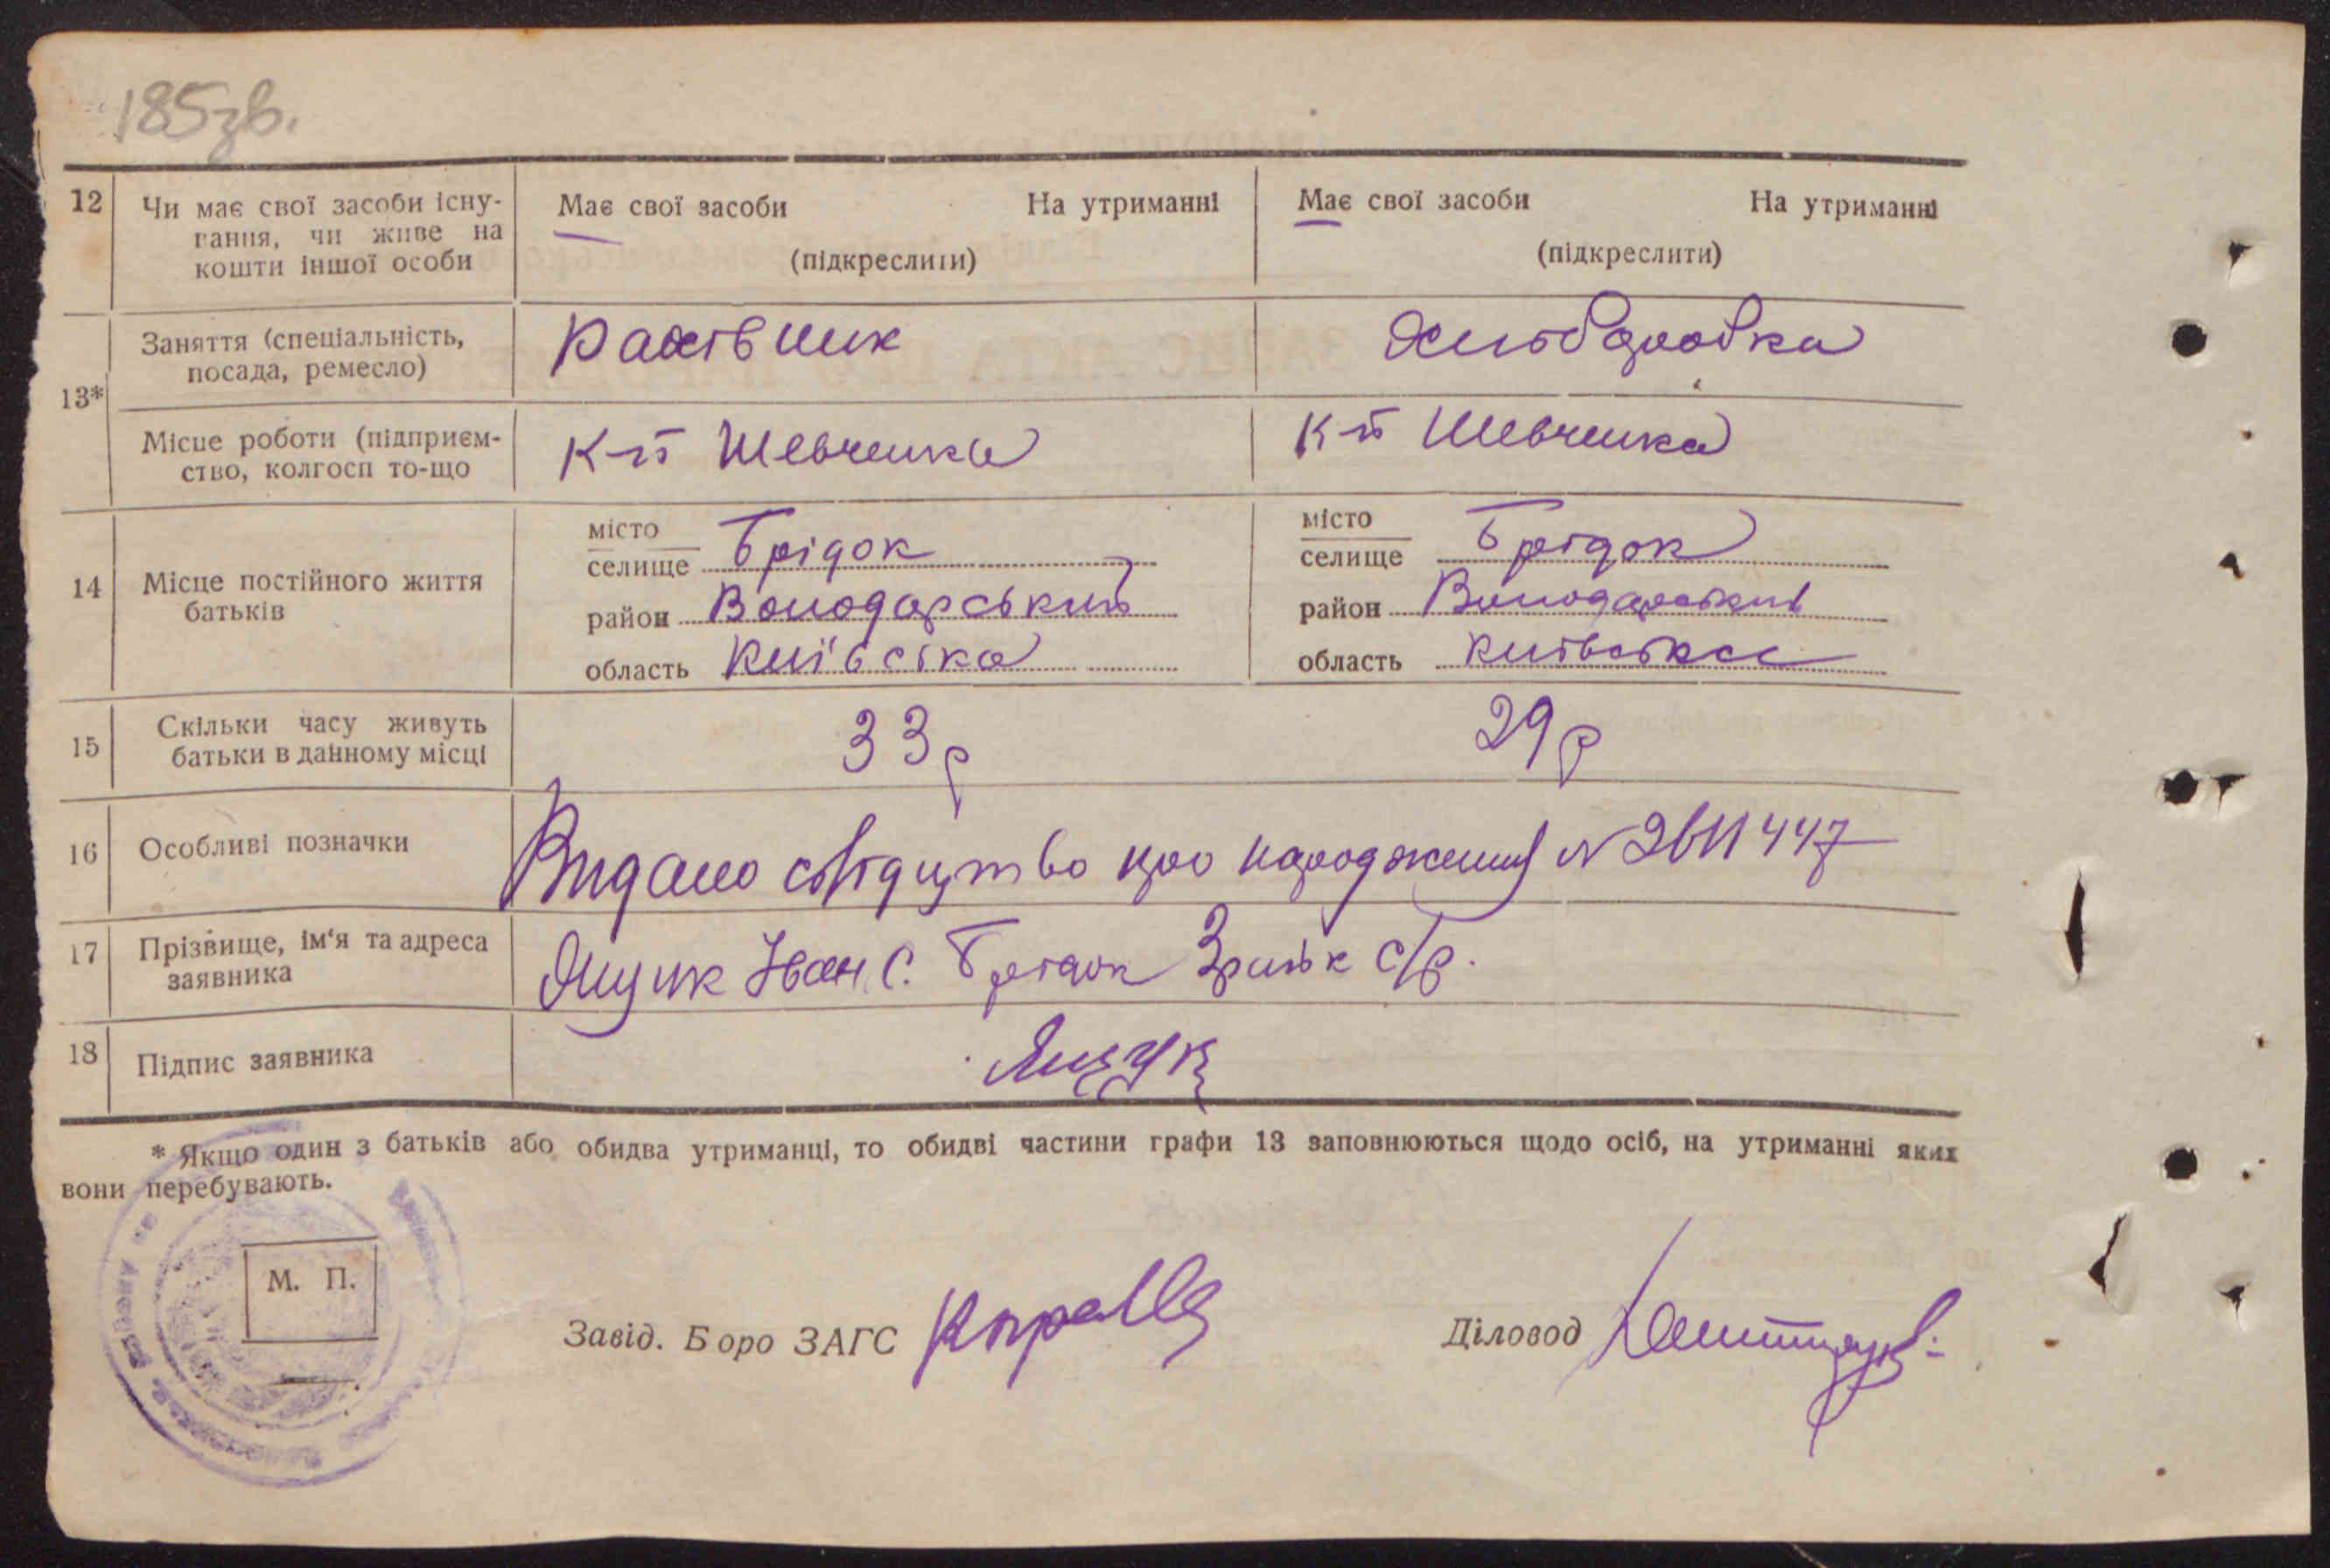 185зв.
12 Чи має свої засоби існу-
вання, чи живе на
кошти іншої особи
Має свої засоби На утриманні
(підкреслити)
Має свої засоби На утриманні
(підкреслити)
13*
Заняття (спеціальність,
посада, ремесло)
Рахівник
Хліборобка
Місце роботи (підприєм-
ство, колгосп то-що
К-п Шевченка
К-п Шевченка
14 Місце постійного життя
батьків
місто
селище Брідок
район Володарський
область Київська
місто
селище Брідок
район Володарський
область Київська
15 Скільки часу живуть
батьки в данному місці
33 р
29 р
16 Особливі позначки
Видано свідцтво про народження N 2611447
17 Прізвище, ім'я та адреса
заявника
Ящук Іван С. Брідок с/р.
18 Підпис заявника
Ящук
* Якщо один з батьків або обидва утриманці, то обидві частини графи 13 заповнюються щодо осіб, на утриманні яких
вони перебувають.
М. П.
Завід. Боро ЗАГС
Діловод